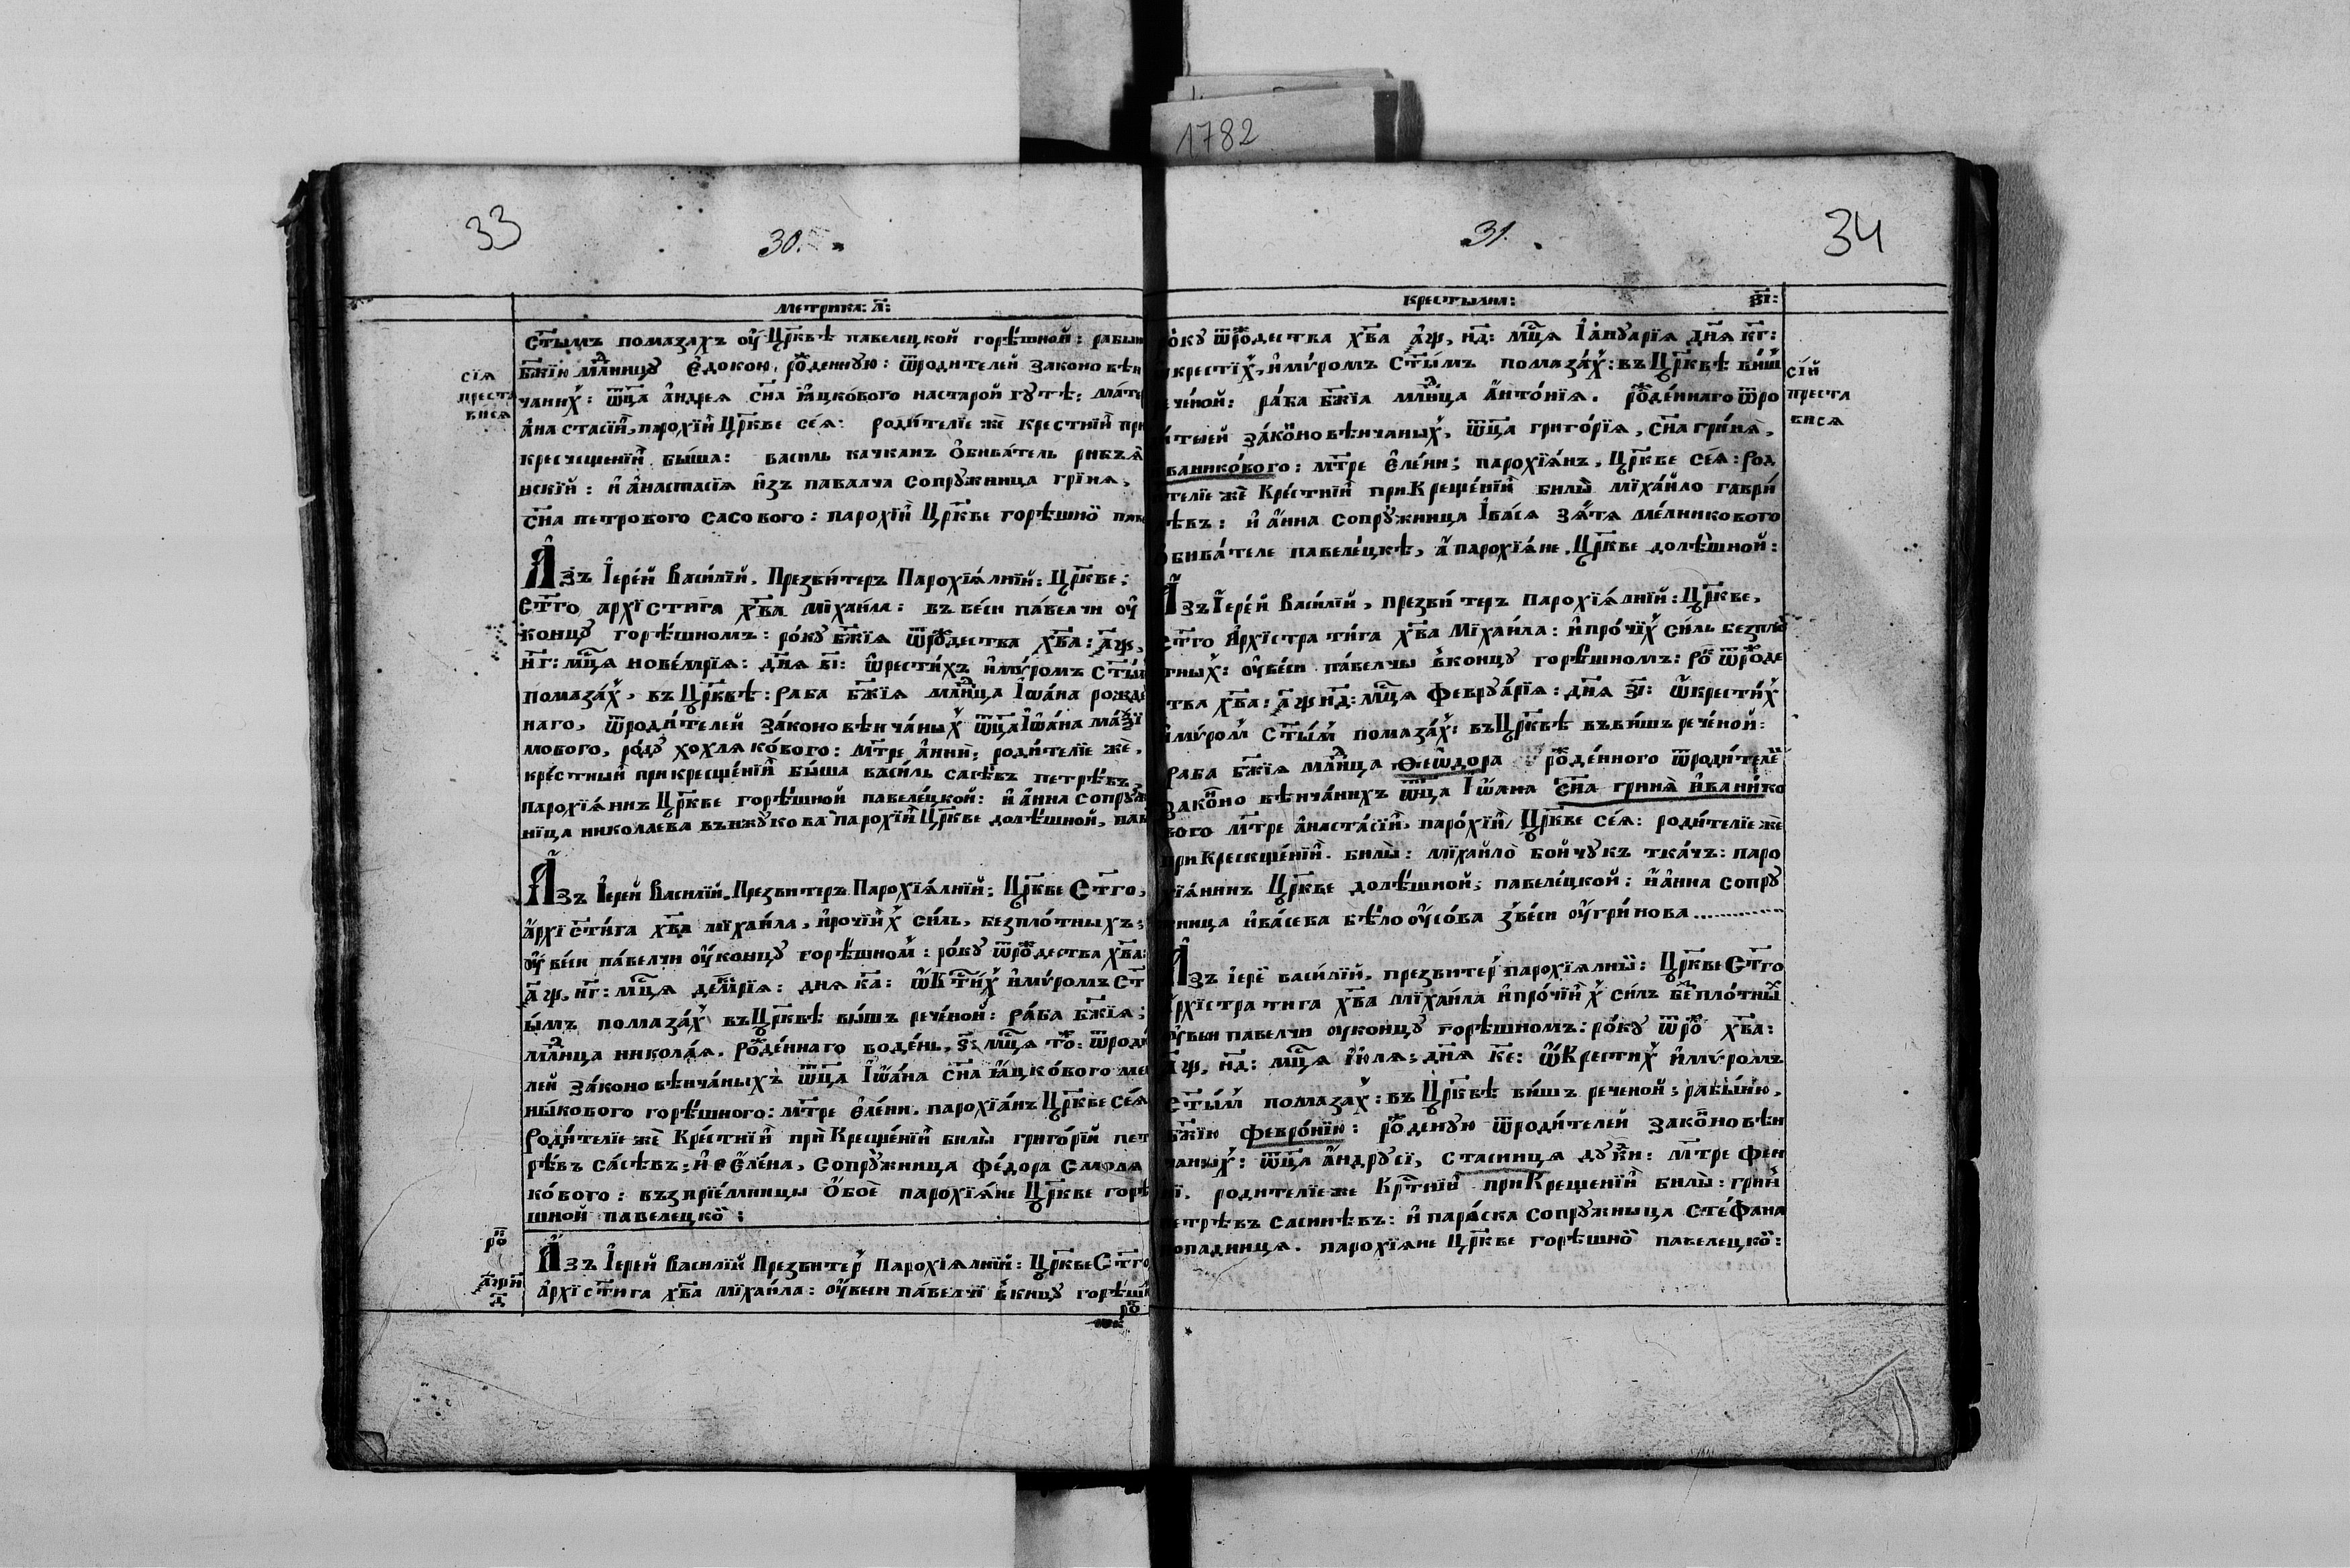 1782
33
30.
Метрика: л҃:
ст҃ымъ помазахъ оу Цр҃квѣ павелецкой горѣшной: рабын
бж҃ію млⷣнцу Єдокою, рожⷣденную: ѿродителей законо вѣн
чаних: ѿц҃а андрея сн҃а яцкового настарой гутѣ: мате
анастасіи, парохіи Цр҃кве сея: родителіе же крестніи при
крещщеніи быша: василь качканъ обиватель
нскій: и анастасія изъ павалча сопружница гріня,
сн҃а петрового сасового: парохіи Цр҃кве горѣшно пав
сія
преста
вися
Азъ Іерей Василій, Презвитеръ Парохіялній: Цр҃кве:
Ст҃го архістига хв҃а міхаила: въ веси павелчи оу
концу горѣшномъ: року бж҃ія ѿрожⷣдества хв҃а: ҂аѱ,
н҃г: мц҃я новемрія: дн҃я в҃і: ѡкрестихъ имѵромъ ст҃ы
помазах, въ Цр҃квѣ: раба бж҃ія млⷣнца Іѡана рожде
наго, ѿродителей законо вѣнчаных ѿц҃а Іѡана мазі
мового, роду хохлякового: мт҃ре анни: родителіе же,
крестныи при крещеніи быша василь сасѣвъ петрѣвъ,
парохіянинъ Цр҃кве горѣшной павелецкой: и анна сопруж
ніца николаева вънжукова парохіи Цр҃кве долѣшной, пав
Азъ Іерей Василій, Презвитеръ Парохіялній: Цр҃кве Ст҃го,
архіст҃ига хв҃а міхаила, ипрочіих силъ, безплотныхъ:
оу веси павелчи оу концу горѣшном: року ѿрожⷣдества хв҃а:
҂аѱ, н҃г: мц҃я демрія: дня к҃а: ѡкст҃их имѵромъ ст҃
ымъ помазах въ Цр҃квѣ вышъ реченой: раба бж҃ія;
млⷣнца николая, рожⷣденнаго водень, ѕ҃: мц҃я тоⷢ: ѿроди
лей законо вѣнчаныхъ ѿц҃а Іѡана сн҃а яцкового ме
ныкового горѣшного: мт҃ре елени. парохіанъ Цр҃кве сея
Родителіе же Крестніи при Крещеніи били григорій пет
рѣвъ сасѣвъ: и Єлена, Сопружница федора Смоля
кового: възпріемницы обое парохіяне Цр҃кве горѣ
шной павелецко:
роⷦ
҂аѱн
д҃
Азъ Іерей Василій Презвитер Парохіялній: Цр҃кве Ст҃го
архіст҃ига хв҃а міхаила: оувеси павелчи вкнцу горѣшн
роⷦ
34
31.
крестылня:
в҃і:
року ѿрожⷣдества хв҃а ҂аѱ, н҃д: мц҃я Іануарія дн҃я к҃г:
крестіх, имѵромъ ст҃ымъ помазах: въ Цр҃квѣ виш
еченой: раба бж҃ія млⷣнца антонія. рожⷣденнаго ѿро
ителей законо вѣнчаных, ѿц҃а григорія, сн҃а гриня,
ваникового: мт҃ре елени; парохіянъ, Цр҃кве сея: род
телие же Крестніи при Крещеніи били міхайло гаври
ѣвъ: и анна сопружница івася зятя мелникового
обивателе павелецкѣ, а парохіяне, Цр҃кве долѣшной:
сій
преста
вися
Азъ Іерей Василій, презвитеръ парохіялній: Цр҃кве,
ст҃го Архістратига хв҃а Міхаила: ипрочіих силь безпло
тных: оувеси павелчы вконцу горѣшномъ: роⷦ ѿрожⷣде
тва хв҃а: ҂аѱн҃д: мц҃я февруарія: дн҃я з҃і: ѡкрестих
имѵром ст҃ым помазах: въ Цр҃квѣ въвишъ реченой:
раба бж҃ія млⷣнца Ѳеѡдора рожⷣденного ѿродителе
законо вѣнчанихъ ѿц҃а Іѡана сн҃а гриня иванико
вого мт҃ре анастасіи, парохіи, Цр҃кве сея: родителіе же
при Крескщеніи. били: міхайло бойчукъ ткачъ: паро
хіянинъ Цр҃кве долѣшной; павелецкой: и анна сопру
жница ивасева бѣлоусова звеси оугринова............
Азъ ієре василій, презвитер парохіялни: Цр҃кве Ст҃го
архістратига хв҃а міхаила ипрочіих силъ безплотны
оувеи павелчи оуконцу горѣшномъ: року ѿроⷤ хв҃а:
҂аѱ, н҃д: мц҃я июля; дн҃я к҃е: ѡКрестих имѵромъ
ст҃ым помазах: въ Цр҃квѣ вишъ реченой; рабыню,
бж҃ію февронію: рожⷣденую ѿродителей законовѣн
чаных: ѿц҃а андрусі, стасинця дуки: мт҃ре фен
ні. родителіеже Крт҃ніи приКрещеніи били: грин
петрѣвъ сасинѣвъ: и параска сопружныца Стефана
опадниця. парохіяне Цр҃кве горѣшно павелецко: